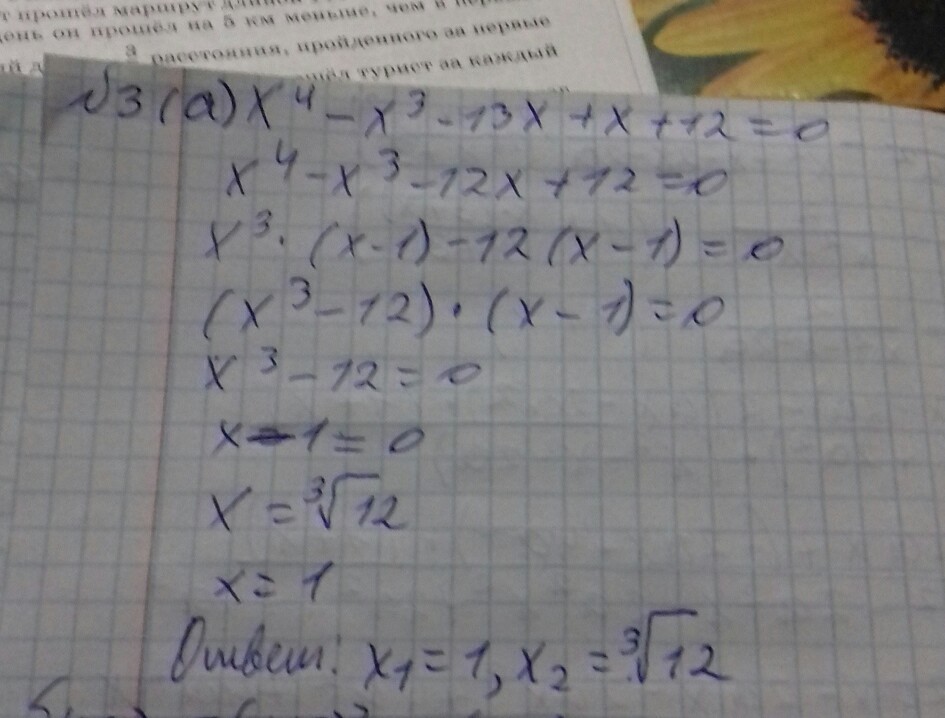 т прошёл маршрут длиной
день он прошёл на 5 км меньше, чем в
3 расстояния, пройденного за первые
турист за каждый
№3 (а) x⁴ - x³ - 13x + x + 12 = 0
x⁴ - x³ - 12x + 12 = 0
x³ · (x - 1) - 12 (x - 1) = 0
(x³ - 12) · (x - 1) = 0
x³ - 12 = 0
x - 1 = 0
x = ³√12
x = 1
Ответ: x₁ = 1, x₂ = ³√12